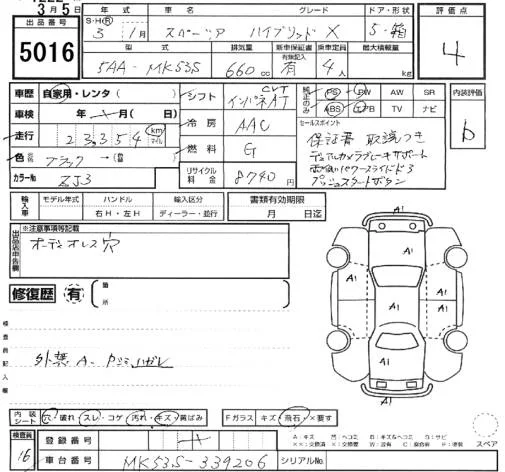 3月5日
出品番号 年式 車名 グレード ドア・形状 評価点
5016 S・H・R 3 1月 スペーシア ハイブリッド X 5・箱 4
型式 排気量 新車保証書 有無記入 乗車定員 最大積載量
5AA-MK53S 660cc 有 4人 kg
車歴 自家用・レンタ( ) シフト CVT インパネAT 純正のみ PS PW AW SR 内装評価
車検 年 月 日 ABS エアB TV ナビ
走行 23,354 km マイル 冷房 AAC セールスポイント b
保証書 取説つき
色 ブラック 燃料 G デュアルカメラブレーキサポート
カラーNo. ZJ3 リサイクル料金 8740円 プッシュスタートボタン
輸入車 モデル年式 ハンドル 輸入区分 書類有効期限
右H・左H ディーラー・並行 月 日迄
出品店申告欄 ※注意事項等記載
オーディオレス穴
A1
A1
A1 A1 A1 A1
A1
A1
修復歴 有 箇所
検査員記入欄
外装A
内装シート 穴・破れ・スレ・コゲ・汚れ・キズ・黄ばみ Fガラス キズ・飛石・×要す
検査員 16 登録番号 スペア
車台番号 MK53S-339206 シリアルNo.